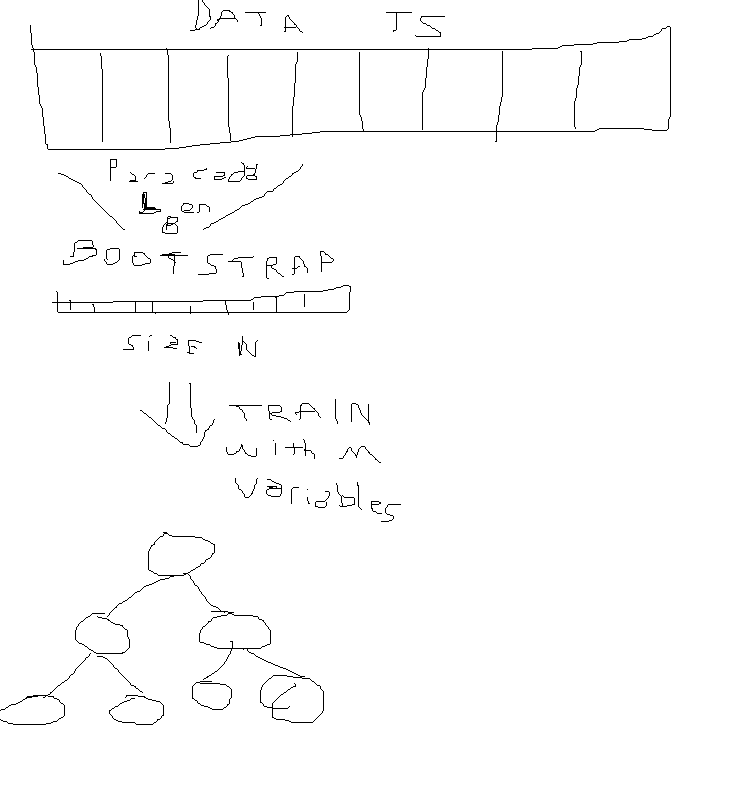 DATA TS
Para cada
L en
B
BOOTSTRAP
SizE N
TRAIN
with m
variables